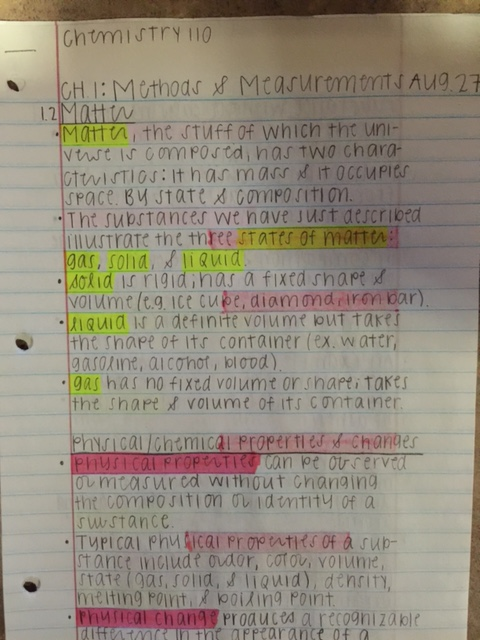 Chemistry 110
CH.1: Methods & Measurements AUG.27
1.2 Matter
• Matter, the stuff of which the uni-
verse is composed, has two chara-
cteristics: it has mass & it occupies
space. By state & composition.
• The substances we have just described
illustrate the three states of matter:
gas, solid, & liquid.
• solid is rigid; has a fixed shape &
volume (e.g. ice cube, diamond, iron bar).
• liquid is a definite volume but takes
the shape of its container (ex. water,
gasoline, alcohol, blood).
• gas has no fixed volume or shape; takes
the shape & volume of its container.
physical/chemical properties & changes
• physical properties can be observed
or measured without changing
the composition or identity of a
substance.
• Typical physical properties of a sub-
stance include odor, color, volume,
state (gas, solid, & liquid), density,
melting point, & boiling point.
• physical change produces a recognizable
difference in the appearance of a